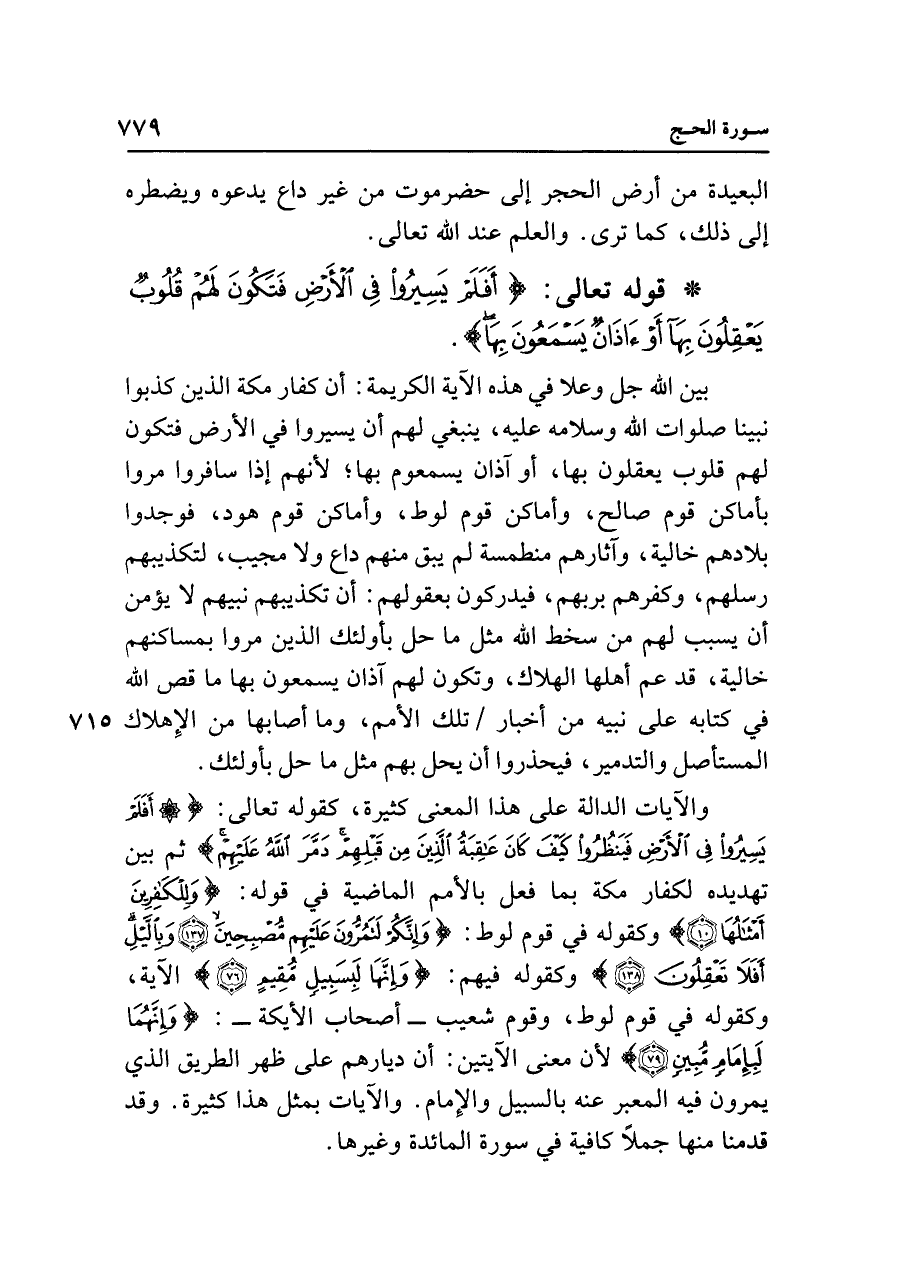 سورة الحج ٧٧٩
البعيدة من أرض الحجر إلى حضرموت من غير داع يدعوه ويضطره
إلى ذلك، كما ترى. والعلم عند الله تعالى.
* قوله تعالى: ﴿ أَفَلَمْ يَسِيرُوا۟ فِى ٱلْأَرْضِ فَتَكُونَ لَهُمْ قُلُوبٌ
يَعْقِلُونَ بِهَآ أَوْ ءَاذَانٌ يَسْمَعُونَ بِهَاۖ﴾.
بين الله جل وعلا في هذه الآية الكريمة: أن كفار مكة الذين كذبوا
نبينا صلوات الله وسلامه عليه، ينبغي لهم أن يسيروا في الأرض فتكون
لهم قلوب يعقلون بها، أو آذان يسمعوم بها؛ لأنهم إذا سافروا مروا
بأماكن قوم صالح، وأماكن قوم لوط، وأماكن قوم هود، فوجدوا
بلادهم خالية، وآثارهم منطمسة لم يبق منهم داع ولا مجيب، لتكذيبهم
رسلهم، وكفرهم بربهم، فيدركون بعقولهم: أن تكذيبهم نبيهم لا يؤمن
أن يسبب لهم من سخط الله مثل ما حل بأولئك الذين مروا بمساكنهم
خالية، قد عم أهلها الهلاك، وتكون لهم آذان يسمعون بها ما قص الله
في كتابه على نبيه من أخبار / تلك الأمم، وما أصابها من الإهلاك ٧١٥
المستأصل والتدمير، فيحذروا أن يحل بهم مثل ما حل بأولئك.
والآيات الدالة على هذا المعنى كثيرة، كقوله تعالى: ﴿ ۞ أَفَلَمْ
يَسِيرُوا۟ فِى ٱلْأَرْضِ فَيَنظُرُوا۟ كَيْفَ كَانَ عَٰقِبَةُ ٱلَّذِينَ مِن قَبْلِهِمْۚ دَمَّرَ ٱللَّهُ عَلَيْهِمْۖ﴾ ثم بين
تهديده لكفار مكة بما فعل بالأمم الماضية في قوله: ﴿ وَلِلْكَٰفِرِينَ
أَمْثَٰلُهَا ۝١٠﴾ وكقوله في قوم لوط: ﴿ وَإِنَّكُمْ لَتَمُرُّونَ عَلَيْهِم مُّصْبِحِينَ ۝١٣٧ وَبِٱلَّيْلِۗ
أَفَلَا تَعْقِلُونَ ۝١٣٨ ﴾ وكقوله فيهم: ﴿ وَإِنَّهَا لَبِسَبِيلٍ مُّقِيمٍ ۝٧٦ ﴾ الآية،
وكقوله في قوم لوط، وقوم شعيب ــ أصحاب الأيكة ــ : ﴿ وَإِنَّهُمَا
لَبِإِمَامٍ مُّبِينٍ ۝٧٩﴾ لأن معنى الآيتين: أن ديارهم على ظهر الطريق الذي
يمرون فيه المعبر عنه بالسبيل والإمام. والآيات بمثل هذا كثيرة. وقد
قدمنا منها جملاً كافية في سورة المائدة وغيرها.